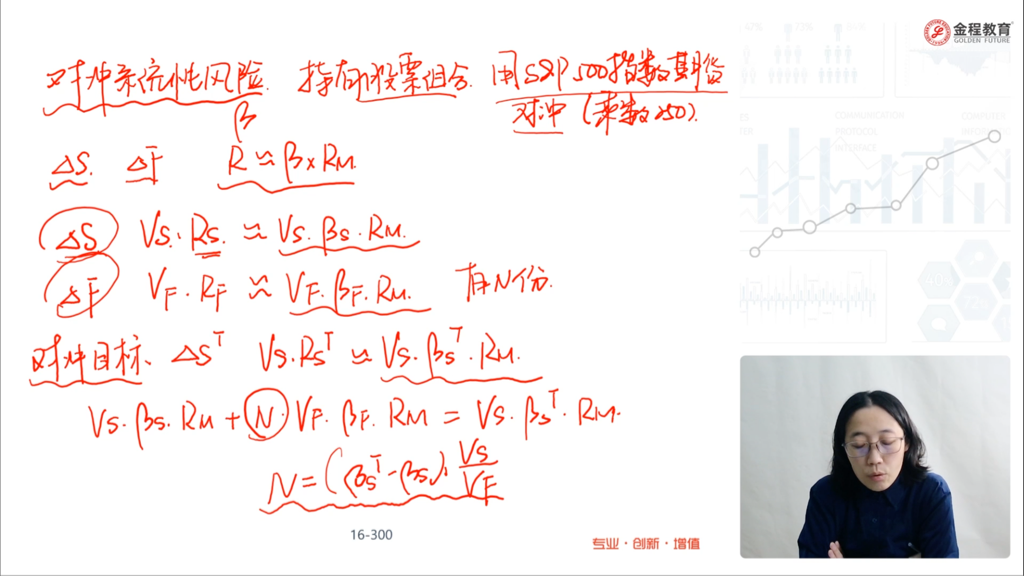 金程教育
GOLDEN FUTURE
对冲系统性风险. 持有的股票组合. 用S&P 500指数期货
β 对冲 (乘数250).
ΔS. ΔF R ≈ β × RM.
ΔS VS · RS. ≈ VS · βS · RM.
ΔF VF · RF ≈ VF · βF · RM. 有N份.
对冲目标. ΔS^T VS · RS^T ≈ VS · βS^T · RM.
VS · βS · RM + N · VF · βF · RM = VS · βS^T · RM.
N = (βS^T - βS) · VS/VF
16-300
专业·创新·增值
COMMUNICATION
PROTOCOL
INTERFACE